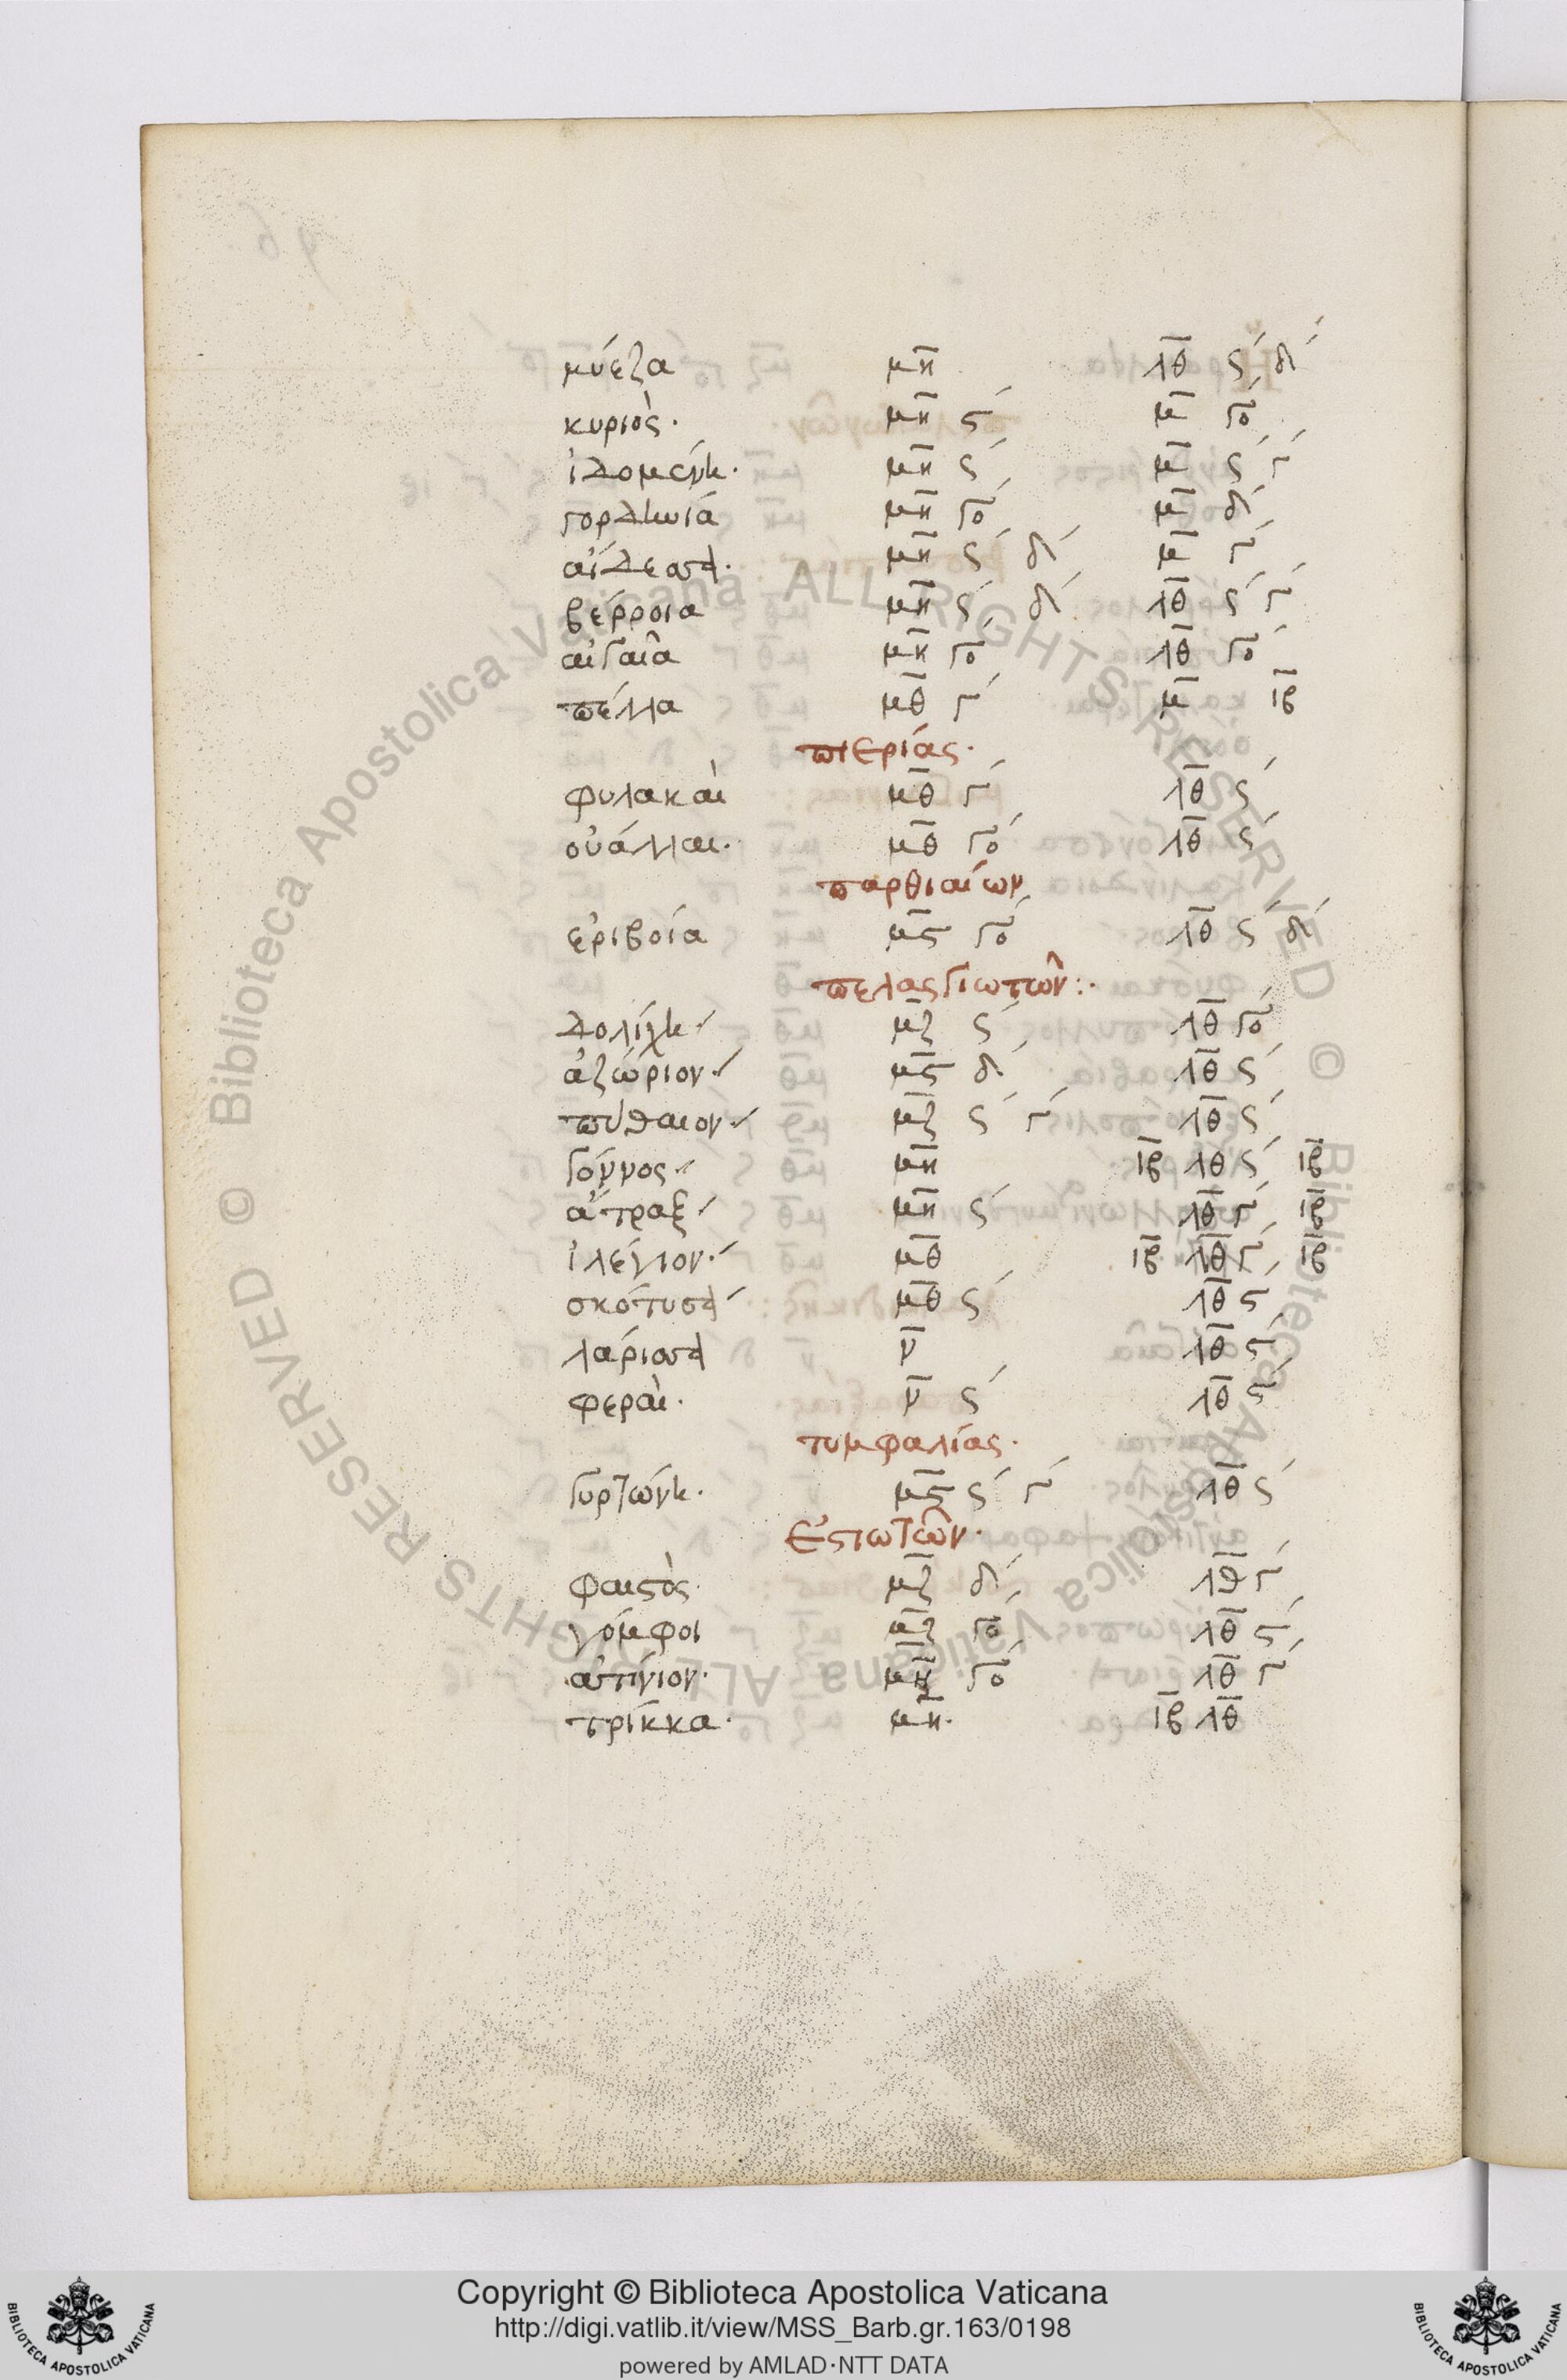 μύεζα μη λθ ς´ δ´
κυριὸς· μη ς´ μ γο´
ἰδομένη· μη ς´ μ ς´ γ´
γορδωνιά μη γο´ μ δ´
αἴδεσσα· μη ς´ δ´ μ γ´
βέρροια μη ς´ δ´ λθ ς´ γ´
αἰγαῖα μη γο´ λθ γο´
πέλλα μθ γ´ μ ιβ
πιερίας·
φυλακαὶ μθ γ´ λθ ς´
οὐάλλαι· μθ γο´ λθ ς´
παρθιαίων
ἐριβοία μς γο´ λθ ς´ δ´
πελασγιωτῶν:·
δολίχη μζ ς´ λθ γο´
ἀζώριον· μς δ´ λθ ς´
πύθαιον· μζ ς´ γ´ λθ ς´
γόννος· μη ιβ λθ ς´ ιβ
ἄτραξ μη ς´ λθ γ´ ιβ
ἰλέγιον· μθ ιβ λθ γ´ ιβ
σκότυσα μθ ς´ λθ ς
λάρισσα ν λθ ς´
φεραὶ· ν ς´ λθ ς´
τυμφαλίας·
γυρτώνη· μς ς´ γ´ λθ ς´
Ἐστιωτῶν·
φαιστὸς· μζ δ´ λθ γ´
γόμφοι μζ γο´ λθ ς´
αἰτίνιον· μη γο´ λθ γ´
τρίκκα· μη· ιβ λθ
© Biblioteca Apostolica Vaticana ALL RIGHTS RESERVED © Biblioteca Apostolica Vaticana ALL RIGHTS RESERVED
Copyright © Biblioteca Apostolica Vaticana
http://digi.vatlib.it/view/MSS_Barb.gr.163/0198
powered by AMLAD·NTT DATA
BIBLIOTECA APOSTOLICA VATICANA
BIBLIOTECA APOSTOLICA VATICANA